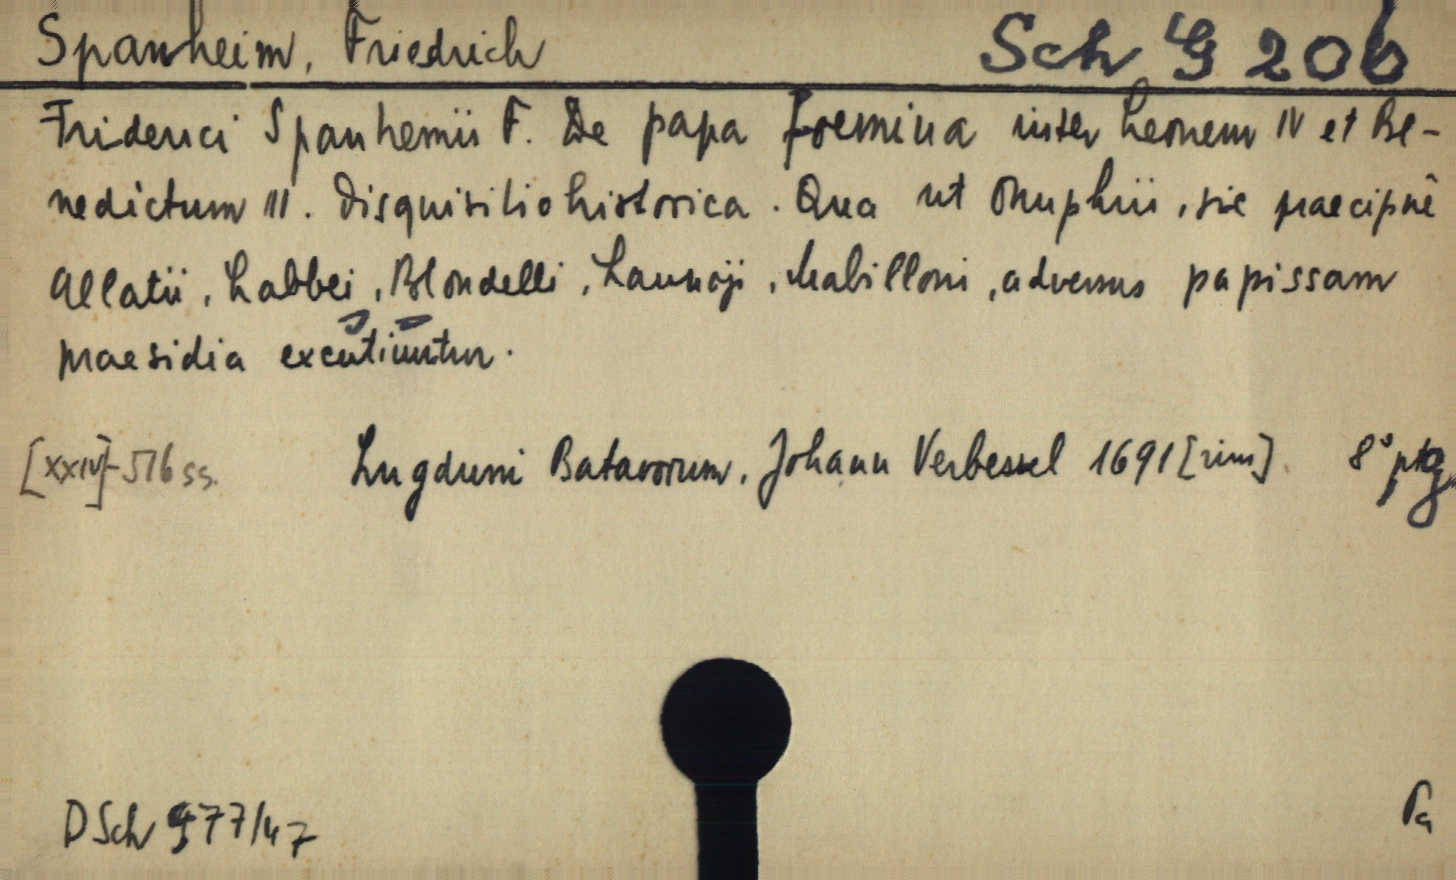 Spanheim, Friedrich Sch G 206
Friderici Spanhemii F. De papa foemina inter Leonem IV et Be-
nedictum III. Disquisitio historica. Qua ut Onuphrii, sic praecipuê
Allatii, Labbei, Blondelli, Launoji, Mabilloni, adversus papissam
praesidia excutiuntur.
[XXIV]-516 ss. Lugduni Batavorum, Johann Verbessel 1691 [rim]. 8° ptg
DSch 977/47